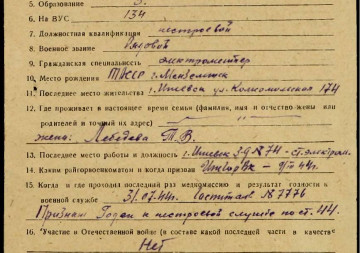 5. Образование 3.
6. На ВУС 134
7. Должностная квалификация нестроевой
8. Военное звание Рядовой
9. Гражданская специальность электромонтер
10. Место рождения ТАССР г. Мензелинск
11. Последнее место жительства г. Ижевск ул. Комсомольская 174
12. Где проживает в настоящее время семья (фамилия, имя и отчество жены или
родителей и точный их адрес) —"—
жена: Лебедева Т. В.
13. Последнее место работы и должность г. Ижевск З-д № 74 - ст. электром.
14. Каким райгорвоенкоматом и когда призван
15. Когда и где проходил последний раз медкомиссию и результат годности к
военной службе 31.07.44г. Госпиталь № 3776
Признан Годен к нестроевой службе по ст. 44.
16. Участие в Отечественной войне (в составе какой последней части в качестве
Нет